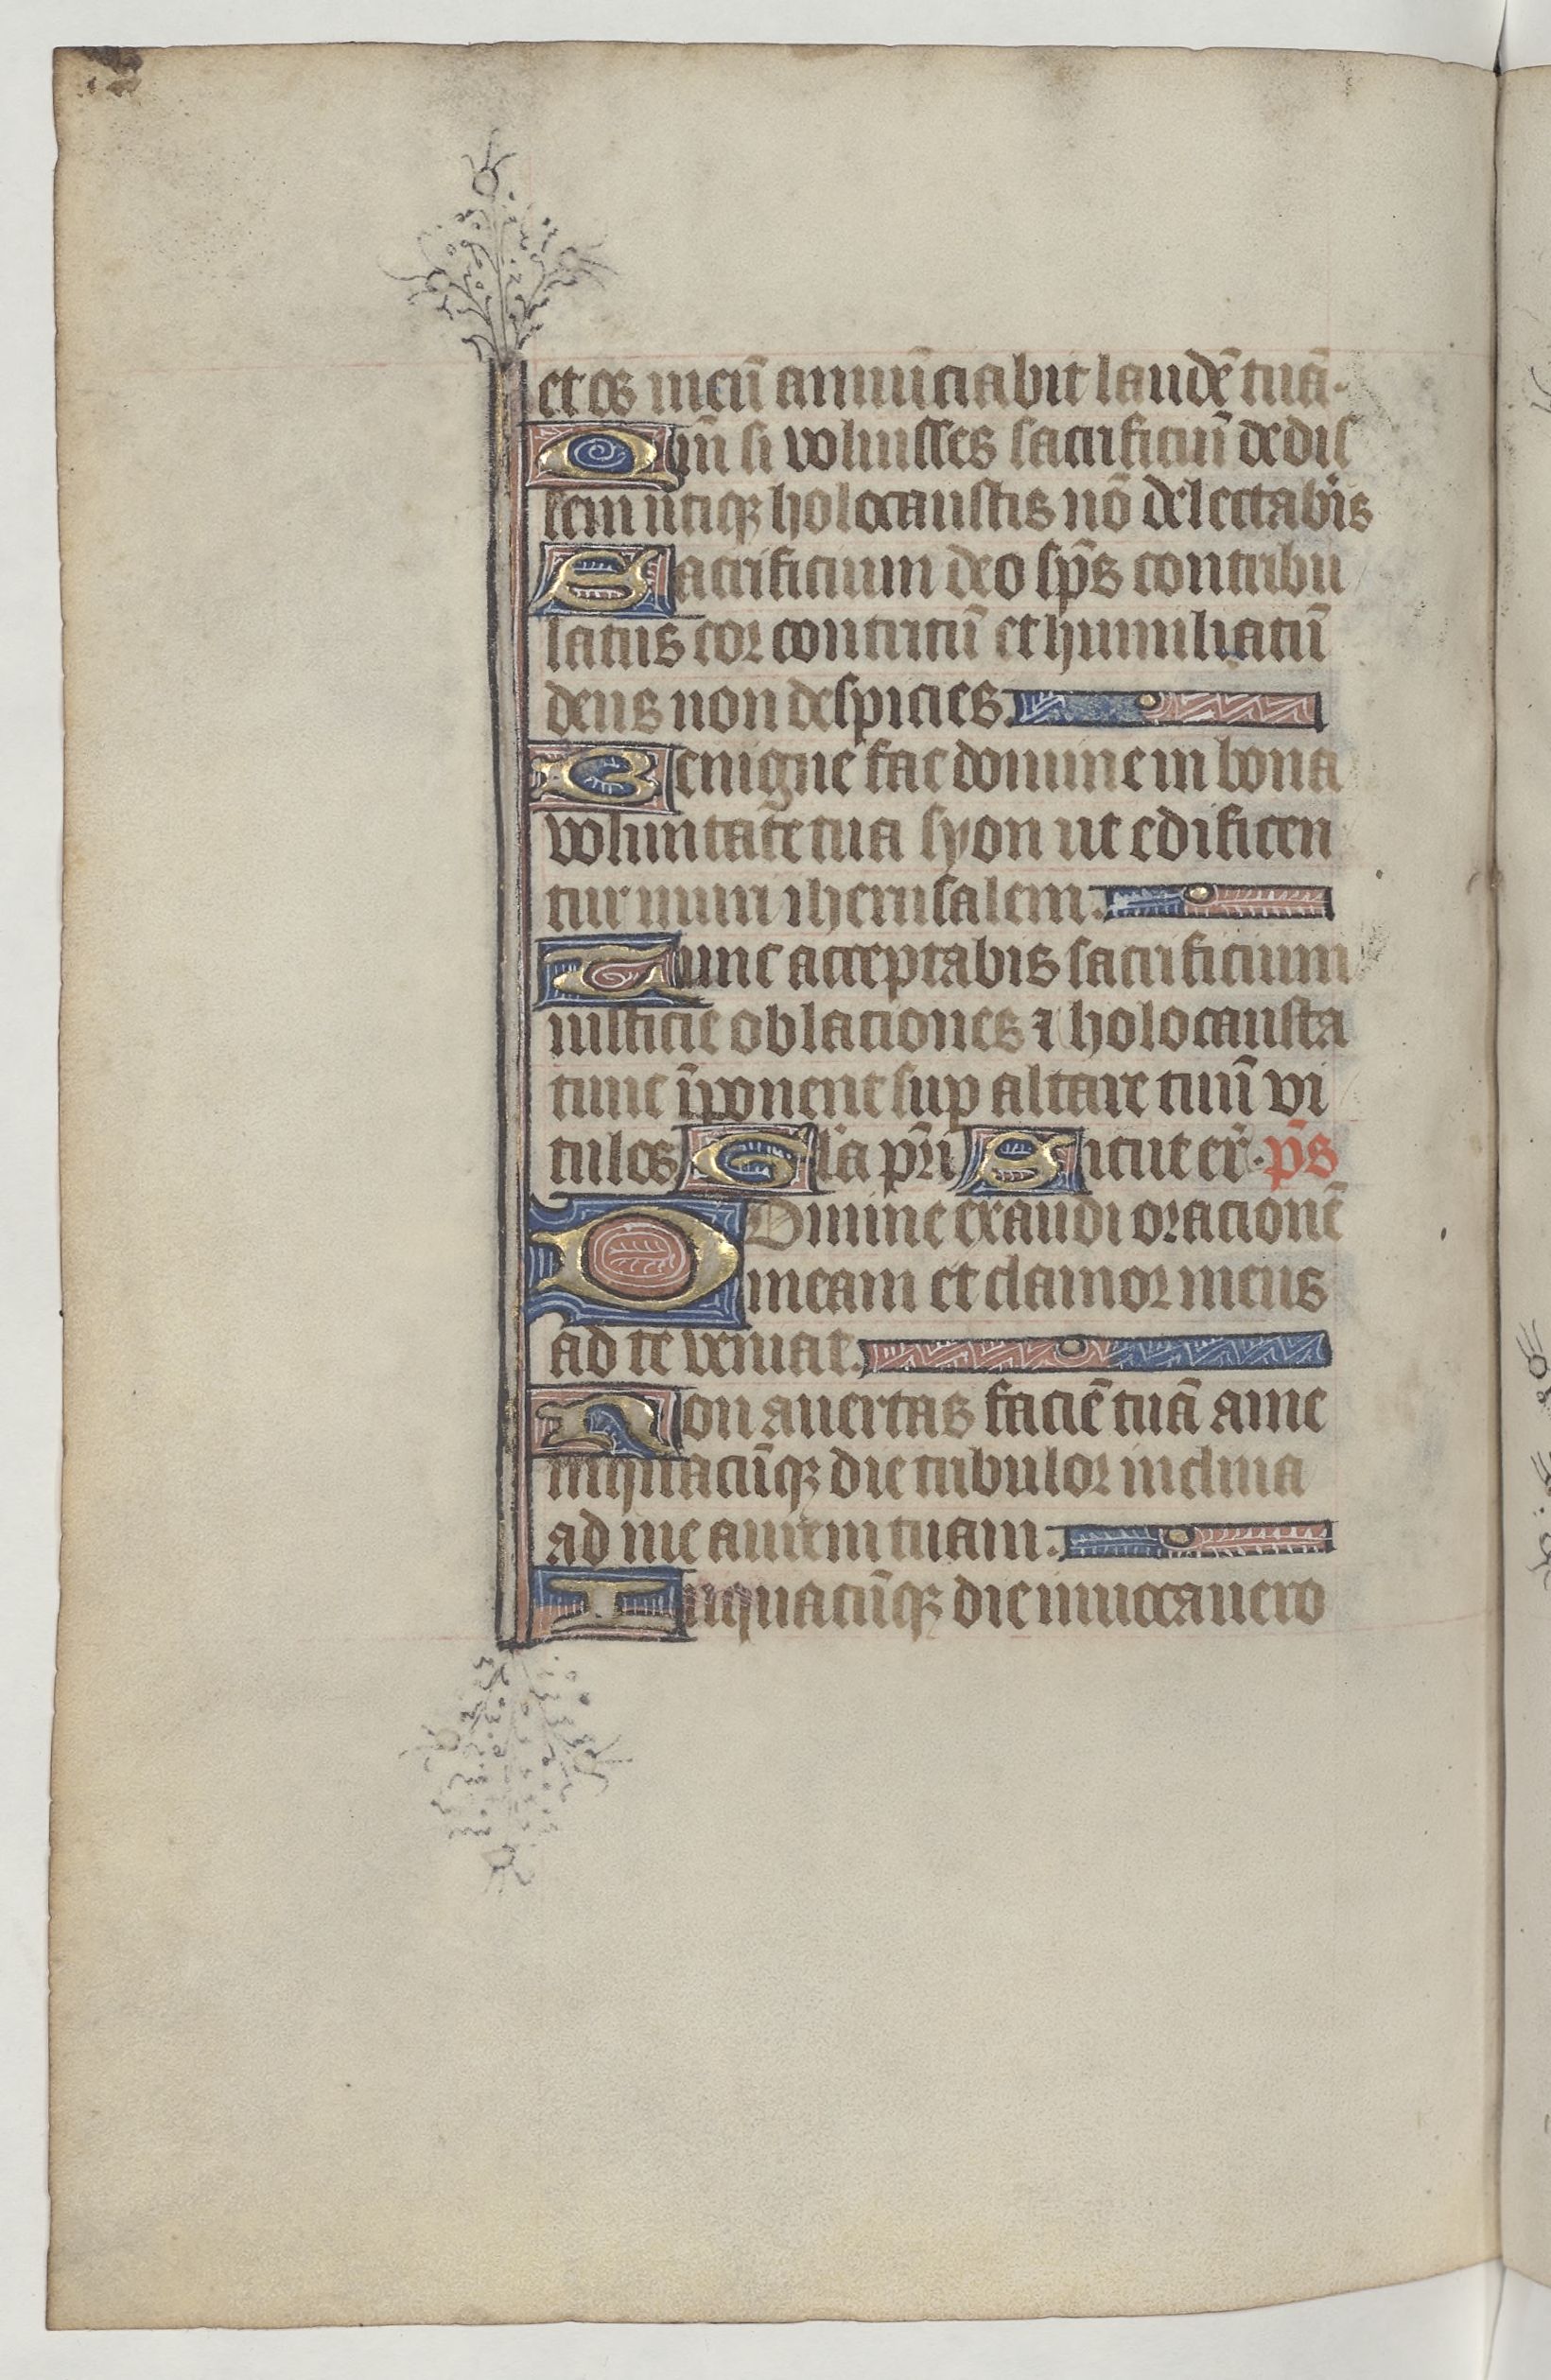 et os meū annūciabit laudē tuā.
Qm̄ si voluisses sacrificiū dedis
sem utiqꝫ holocaustis nō delectab̄is
Sacrificium deo sp̄s contribu
latus cor contritū et humiliatū
deus non despicies.
Benigne fac domine in bona
voluntate tua syon ut edificen
tur muri iherusalem.
Tunc acceptabis sacrificium
iusticie oblaciones ⁊ holocausta
tunc īponent sup altare tuū vi
tulos Gl'a pr̄i Sicut er̄. p̄s
DOmine exaudi oracionē
meam et clamor meus
ad te veniat.
Non auertas faciē tuā a me
inquacūqꝫ die tribulor inclina
ad me aurem tuam.
Inquacūqꝫ die inuocauero